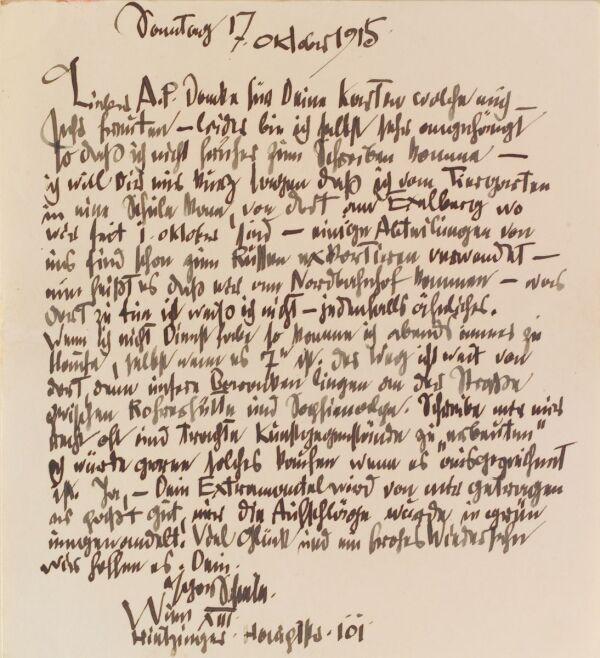 Sonntag 17. Oktober 1915
Lieber A.P. Danke für Deine Karten welche mich
sehr freuten – leider bin ich selbst sehr angehängt
so daß ich nicht früher zum Schreiben komme –
ich will Dir nur kurz sagen daß ich vom Tiergarten
in eine Schule kam, von dort am Exelberg wo
wir seit 1. Oktober sind – einige Abteilungen von
uns sind schon zum Russen exkortieren verwendet –
nun heißt es daß wir am Nordbahnhof kommen – was
dort zu tun ist weiß ich nicht – jedenfalls ähnliches.
Wenn ich nicht Dienst habe so komme ich abends immer zu
Hause, selbst wenn es 7h ist. der Weg ist weit von
dort denn unsere Baracken liegen an der Straße
zwischen Rohrerhütte und Sophienalpe. Schreibe mir nur
recht oft und trachte Kunstgegenstände zu "erbeuten"
ich würde gerne solches kaufen wenn es "ausgezeichnet
ist. Ja, – Dein Extramantel wird von mir getragen
es paßt gut, nur die Aufschläge wurde in grün
umgewandelt. Viel Glück und ein frohes Wiedersehn
wir hoffen es. Dein
Egon Schiele.
Wien XIII
Hietzinger Hauptstr. 101